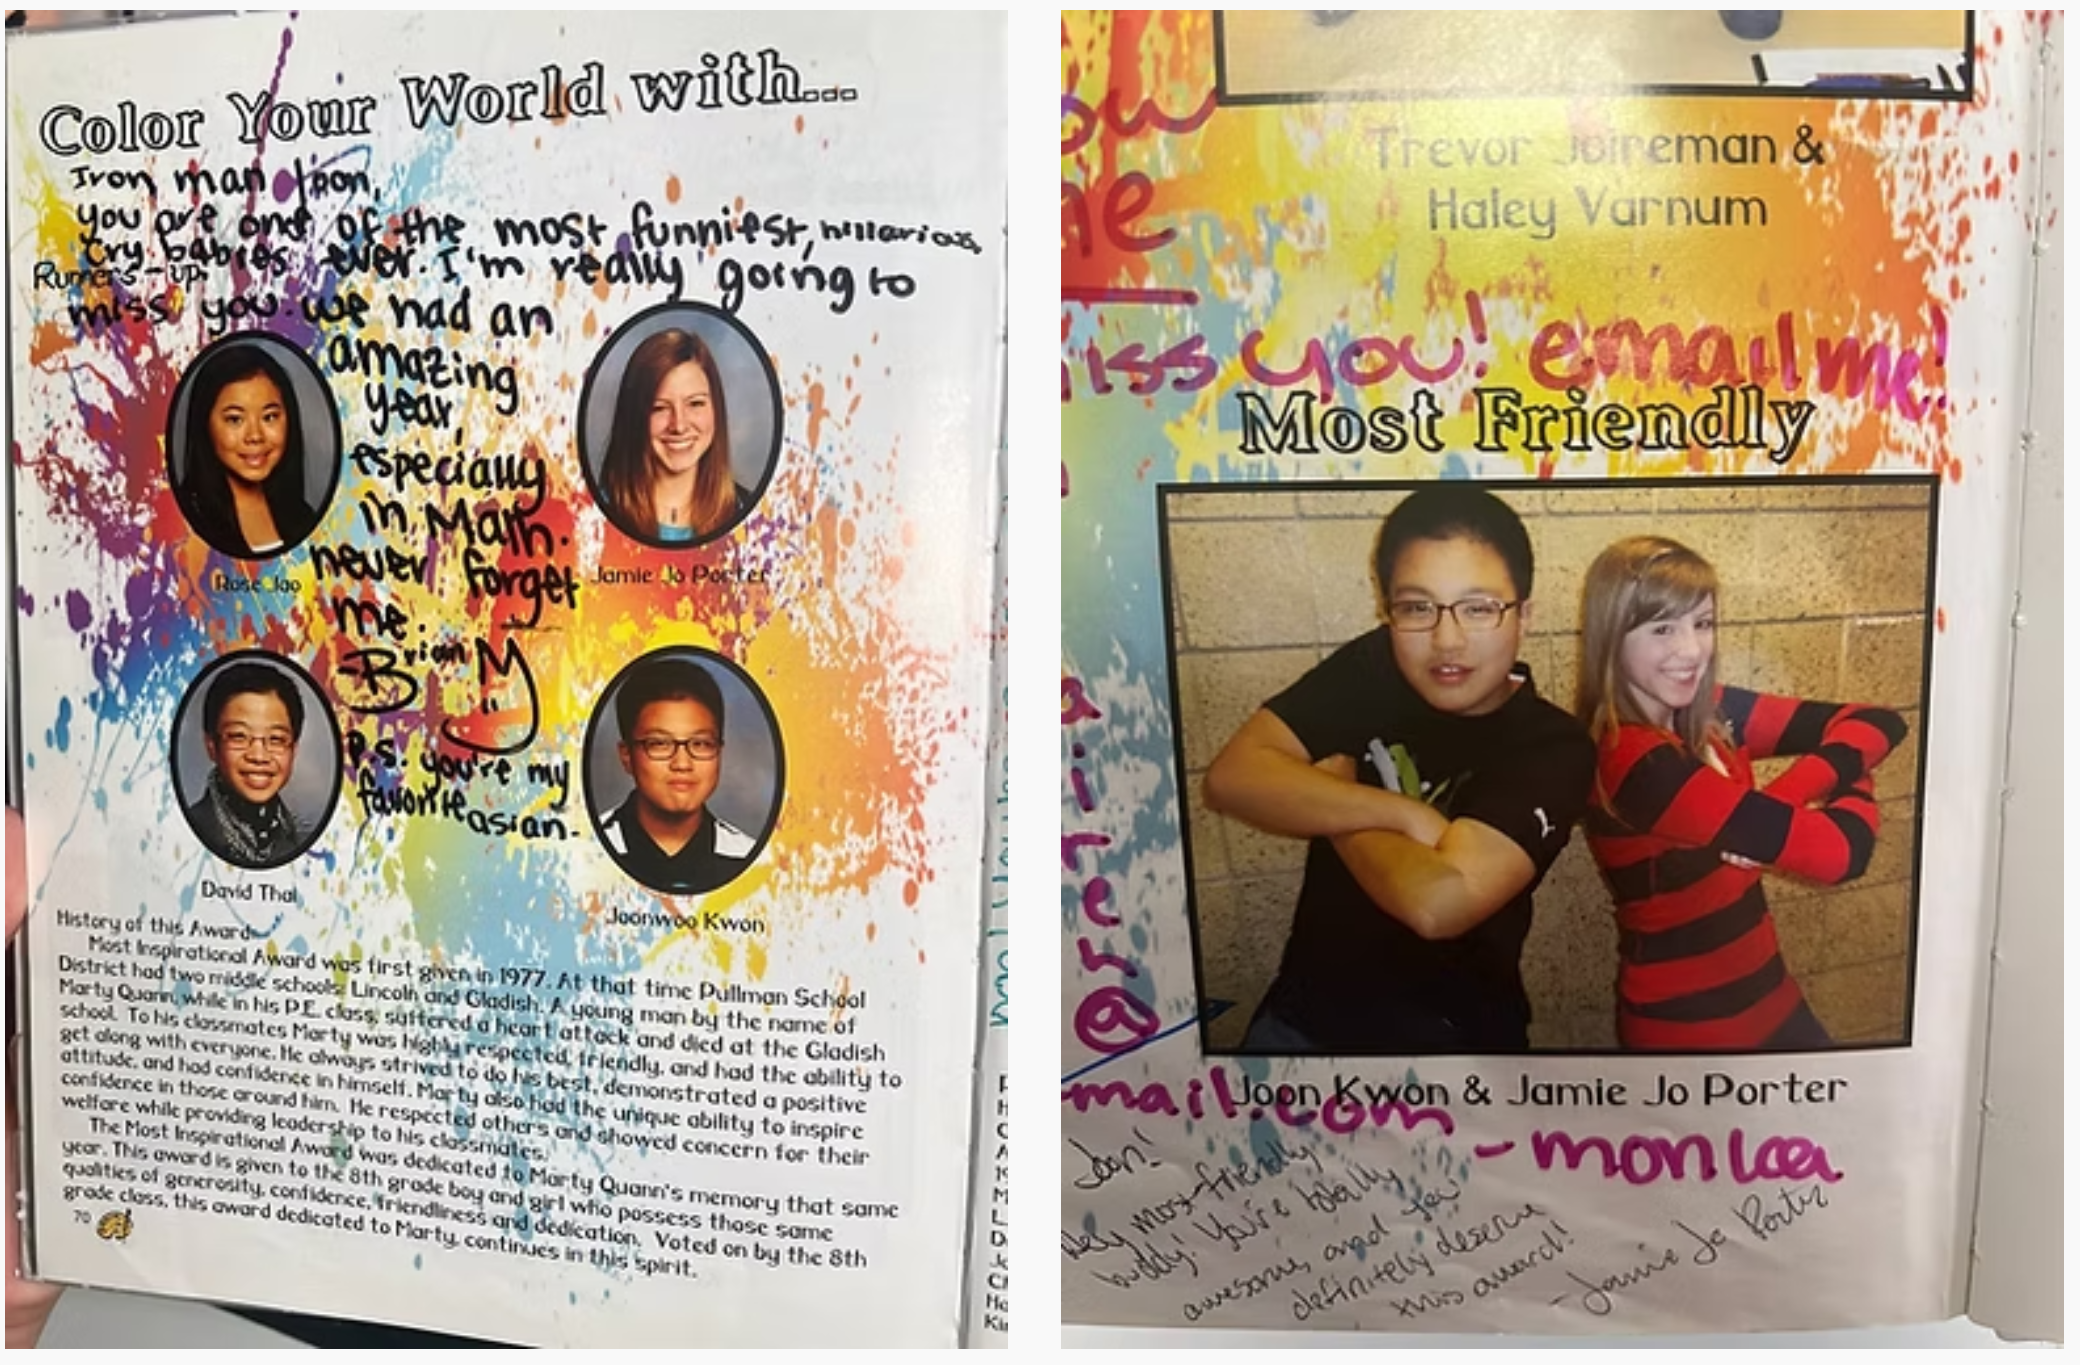 Color Your World with...
Iron man Joon,
you are one of the most funniest, hillarious,
cry babies ever. I'm really going to
Runners-up
miss you. we had an
amazing
year,
especially
in Math.
never forget
me.
-Brian M
P.s. you're my
favorite asian.
Rose Joo
Jamie Jo Porter
David Thai
Joonwoo Kwon
History of this Award
Most Inspirational Award was first given in 1977. At that time Pullman School
District had two middle schools; Lincoln and Gladish. A young man by the name of
Marty Quann, while in his P.E. class, suffered a heart attack and died at the Gladish
school. To his classmates Marty was highly respected, friendly, and had the ability to
get along with everyone. He always strived to do his best, demonstrated a positive
attitude, and had confidence in himself. Marty also had the unique ability to inspire
confidence in those around him. He respected others and showed concern for their
welfare while providing leadership to his classmates.
The Most Inspirational Award was dedicated to Marty Quann's memory that same
year. This award is given to the 8th grade boy and girl who possess those same
qualities of generosity, confidence, friendliness and dedication. Voted on by the 8th
grade class, this award dedicated to Marty, continues in this spirit.
70
Trevor Joireman &
Haley Varnum
iss you! email me!
Most Friendly
@
mail.com
Joon Kwon & Jamie Jo Porter
- monica
Joon!
Hey most-friendly
buddy! You're totally
awesome, and you
definitely deserve
this award!
- Jamie Jo Porter